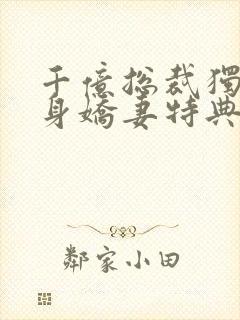 千億總裁獨
身嬌妻特典
鄰家小田